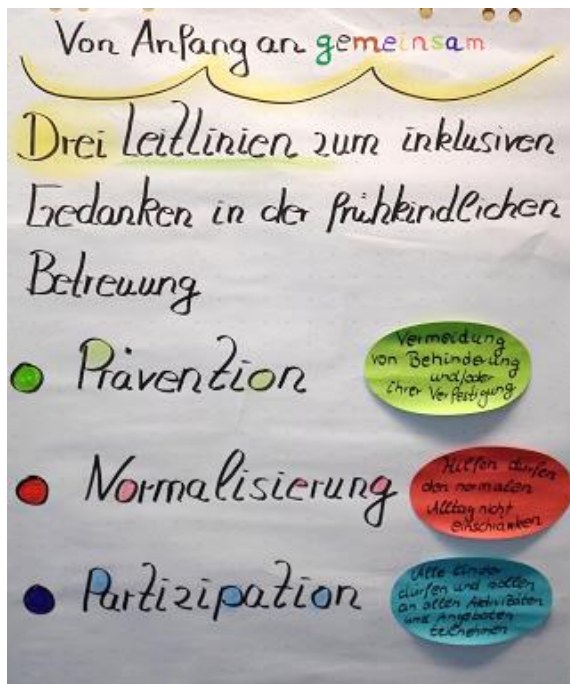 Von Anfang an gemeinsam
Drei Leitlinien zum inklusiven
Gedanken in der frühkindlichen
Betreuung
Prävention
Vermeidung
von Behinderung
und/oder
ihrer Verfestigung
Normalisierung
Hilfen dürfen
den normalen
Alltag nicht
einschränken
Partizipation
Alle Kinder
dürfen und sollen
an allen Aktivitäten
und Angeboten
teilnehmen